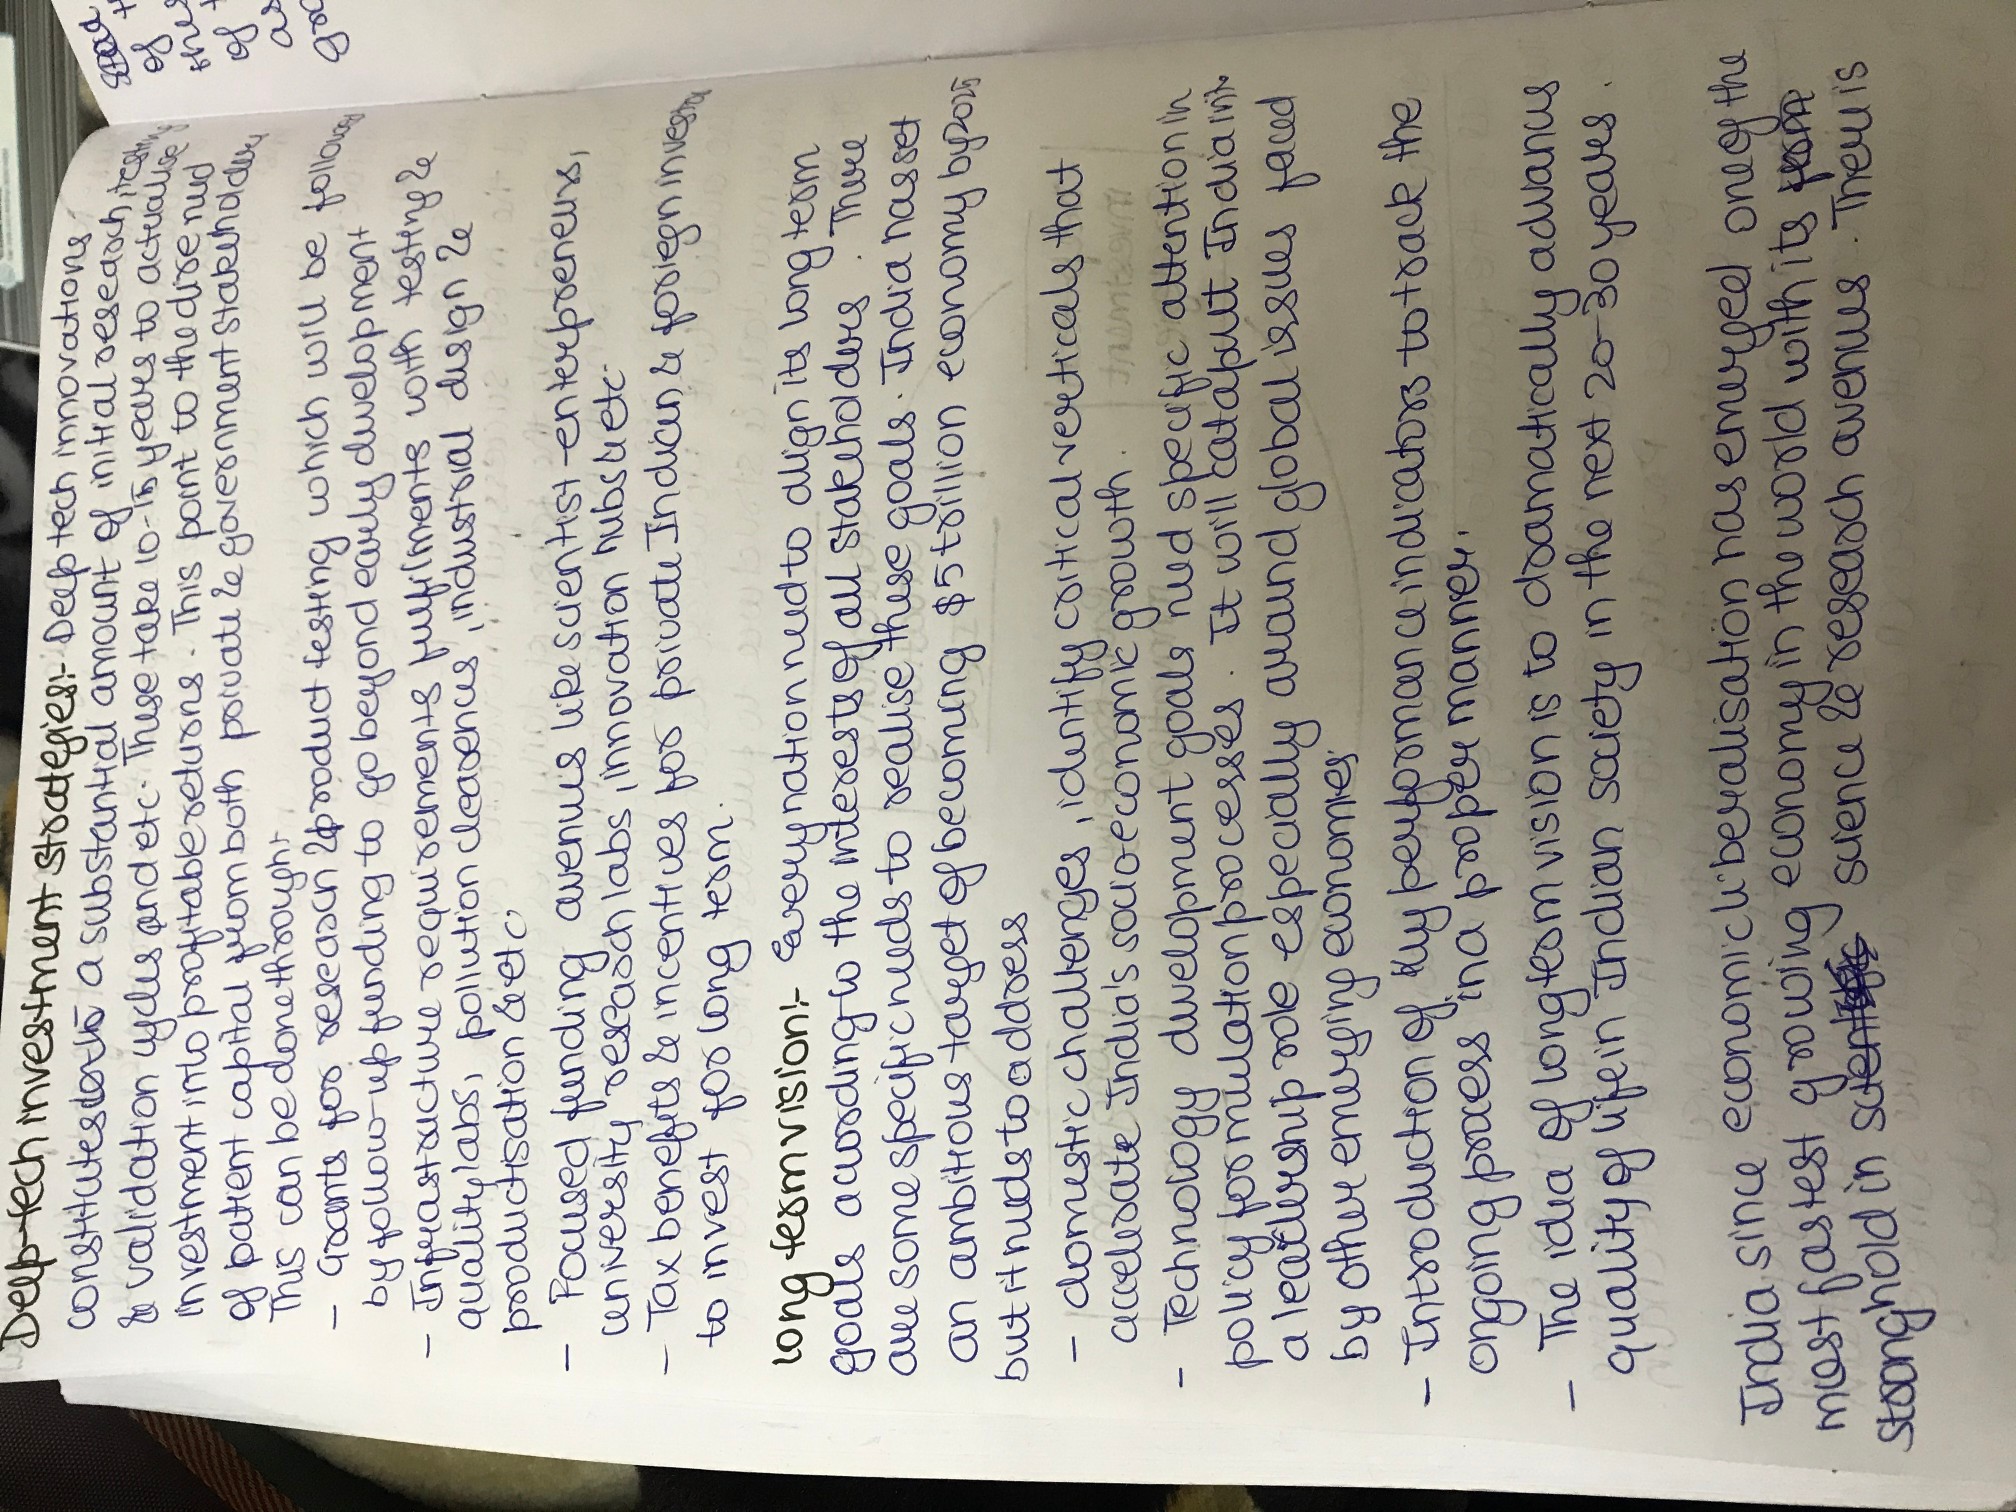 Deep-tech investment strategies:- Deep tech innovations
constitutes a substantial amount of initial research, testing
& validation cycles and etc. These take 10-15 years to actualise
investment into profitable returns. This point to the dire need
of patient capital from both private & government stakeholders
This can be done through:
- Grants for research & product testing which will be followed
by follow-up funding to go beyond early development
- Infrastructure requirements fulfilments with testing &
quality labs, pollution clearences, industrial design &
productisation & etc.
- Focused funding avenues like scientist-enterpreneurs,
university research labs, innovation hubs & etc.
- Tax benefits & incentives for private Indian, & foriegn investors
to invest for long term.
long term vision:- Every nation need to align its long term
goals according to the interests of all stakeholders. There
are some specific needs to realise these goals. India has set
an ambitious target of becoming $5 trillion economy by 2025
but it needs to address
- domestic challenges, identify critical verticals that
accelerate India's socio-economic growth.
- Technology development goals need specific attention in
policy formulation processes. It will catapult India into
a leadership role especially around global issues faced
by other emerging economies.
- Introduction of key performance indicators to track the
ongoing process in a proper manner.
- The idea of long term vision is to dramatically advances
quality of life in Indian society in the next 20-30 years.
India since economic liberalisation has emerged one of the
most fastest growing economy in the world with its
stronghold in science & research avenues. There is
of
of
as